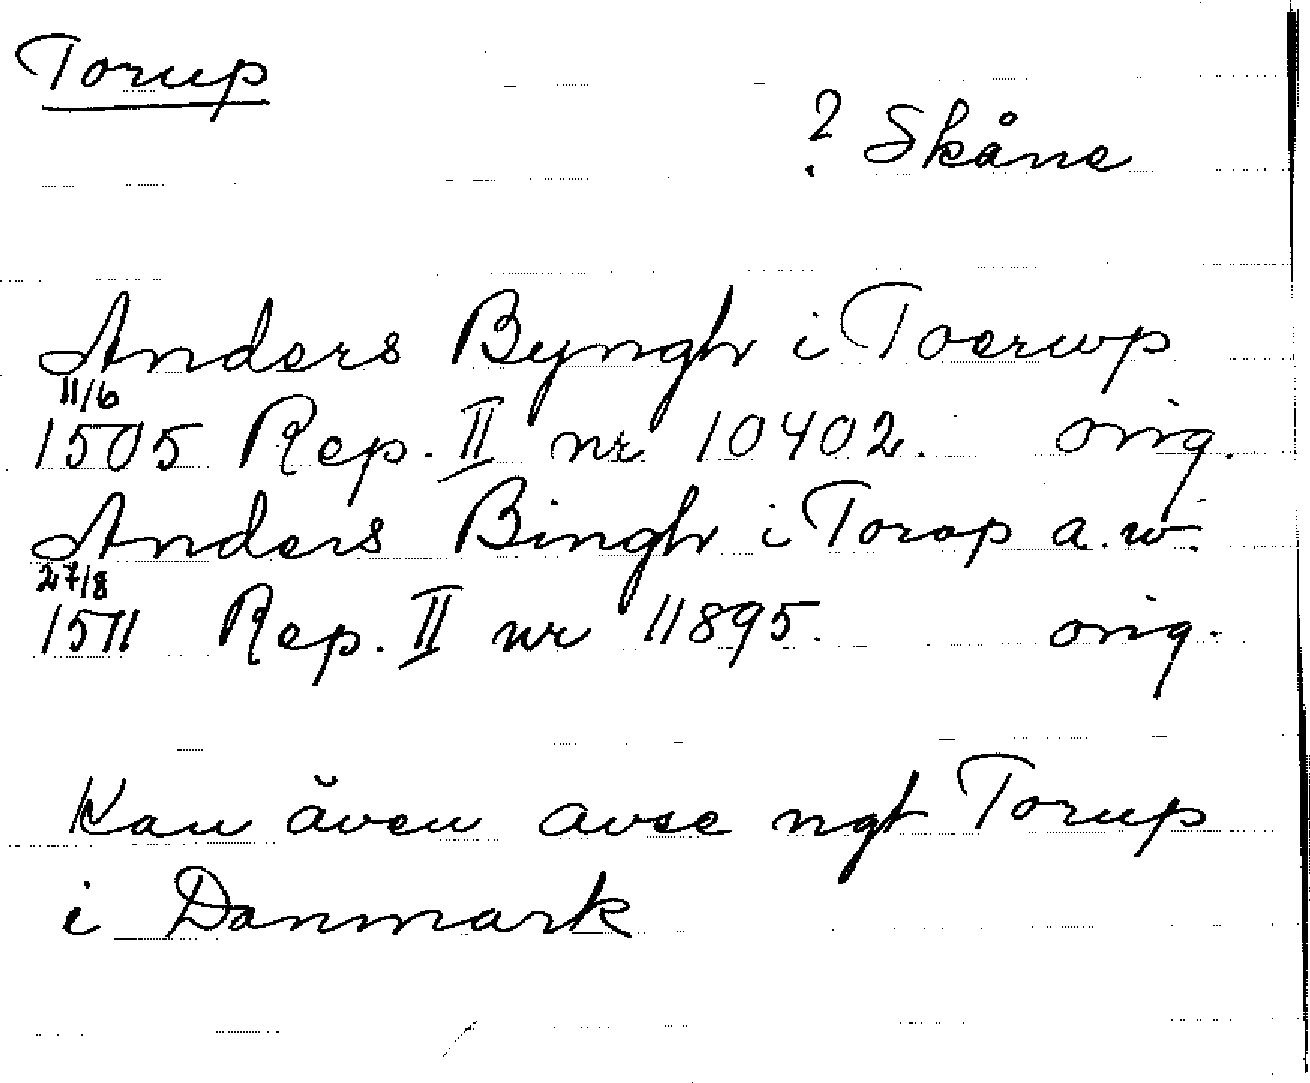 Torup
? Skåne
Anders Byngh i Toerwp
11/6
1505 Rep. II nr 10402. orig.
Anders Bingh i Torop a. w.
27/8
1511 Rep. II nr 11895. orig.
Kan även avse ngt Torup
i Danmark